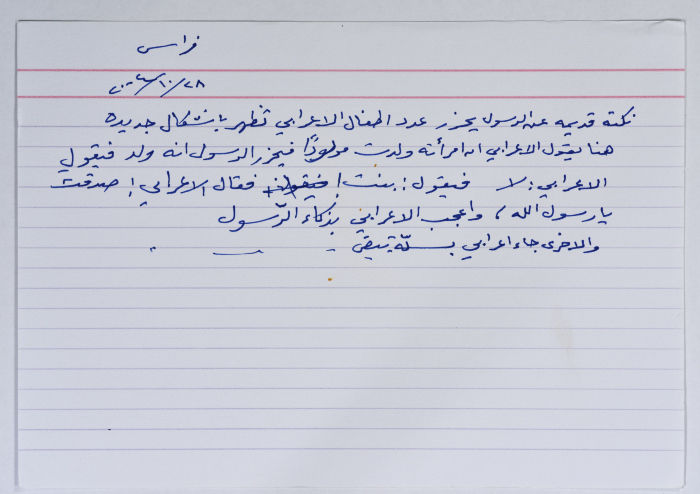 فراس
٢٨/١٠/
نكتة قديمه عن الرسول يحزر عدد اطفال الاعرابي تظهر باشكال جديده
هنا يقول الاعرابي ان امرأته ولدت مولودًا فيحزر الرسول انه ولد فيقول
الاعرابي: لا فيقول: بنت! فقال الاعرابي: صدقت
يا رسول الله، واعجب الاعرابي بذكاء الرّسول
والاخرى جاء اعرابي بسلّة بيض